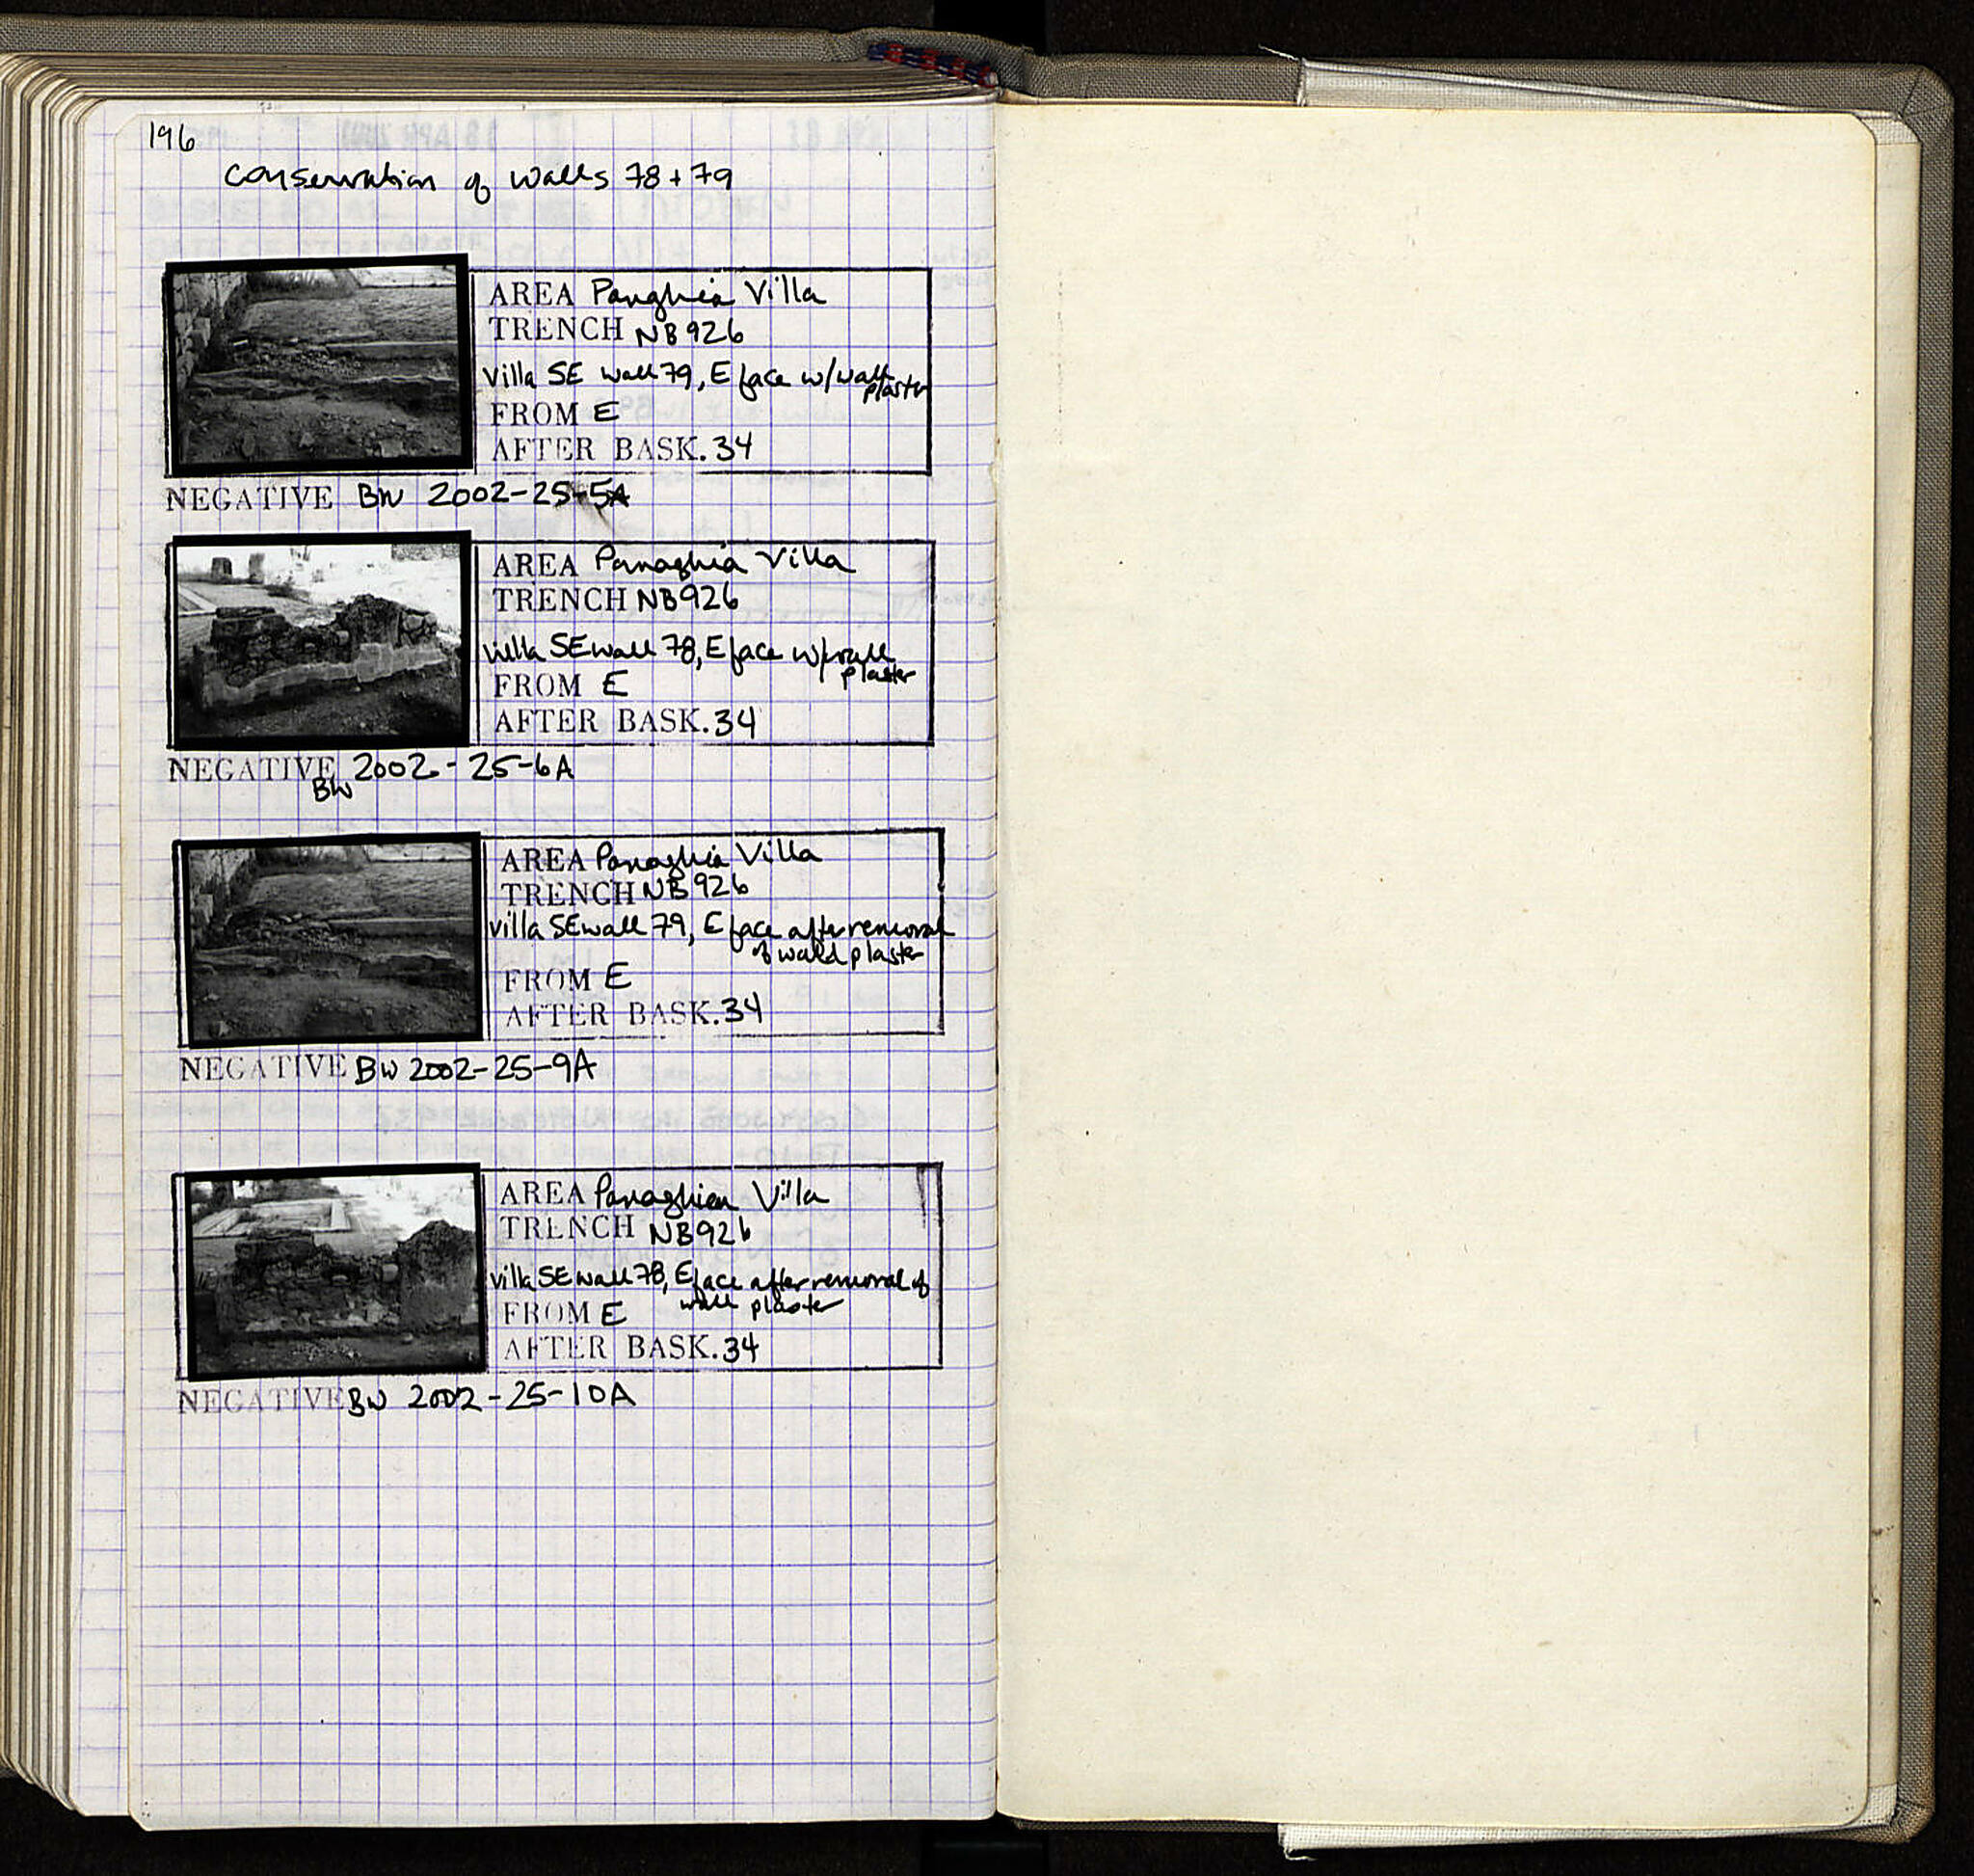 196
conservation of walls 78 + 79
AREA Panghia Villa
TRENCH NB926
Villa SE wall 79, E face w/wall
plaster
FROM E
AFTER BASK. 34
NEGATIVE BW 2002-25-5A
AREA Panaghia Villa
TRENCH NB926
villa SE wall 78, E face w/wall
plaster
FROM E
AFTER BASK. 34
NEGATIVE 2002-25-6A
BW
AREA Panaghia Villa
TRENCH NB 926
villa SE wall 79, E face after removal
of wall plaster
FROM E
AFTER BASK. 34
NEGATIVE BW 2002-25-9A
AREA Panaghia Villa
TRENCH NB926
villa SE wall 78, E face after removal of
wall plaster
FROM E
AFTER BASK. 34
NEGATIVE BW 2002-25-10A